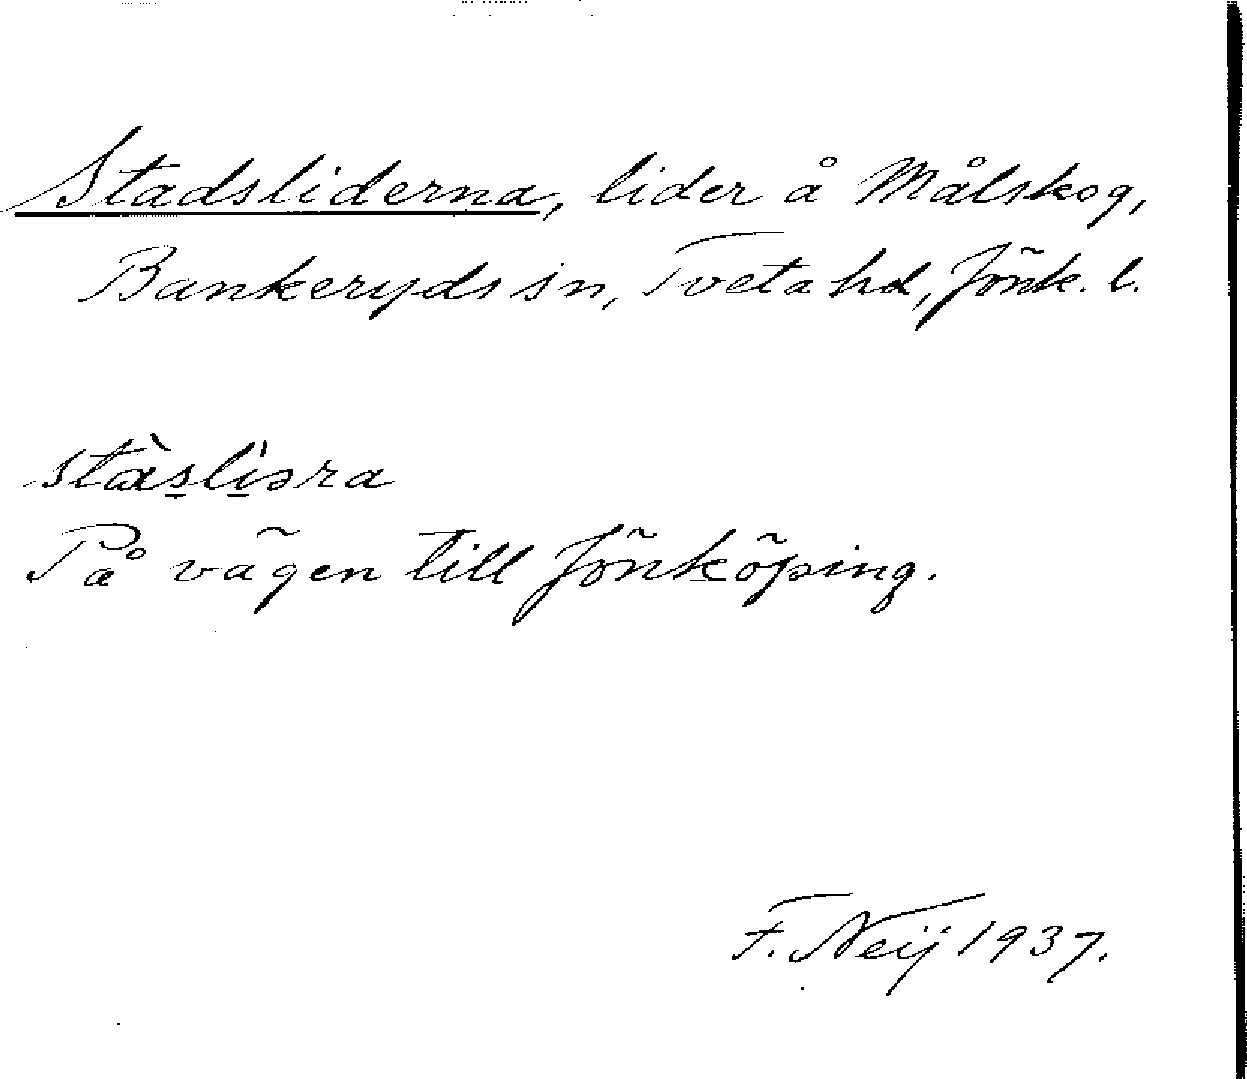 Stadsliderna, lider å Målskog,
Bankeryds sn, Tveta hd, Jönk. l.
stàslìəra
På vägen till Jönköping.
F. Neij 1937.